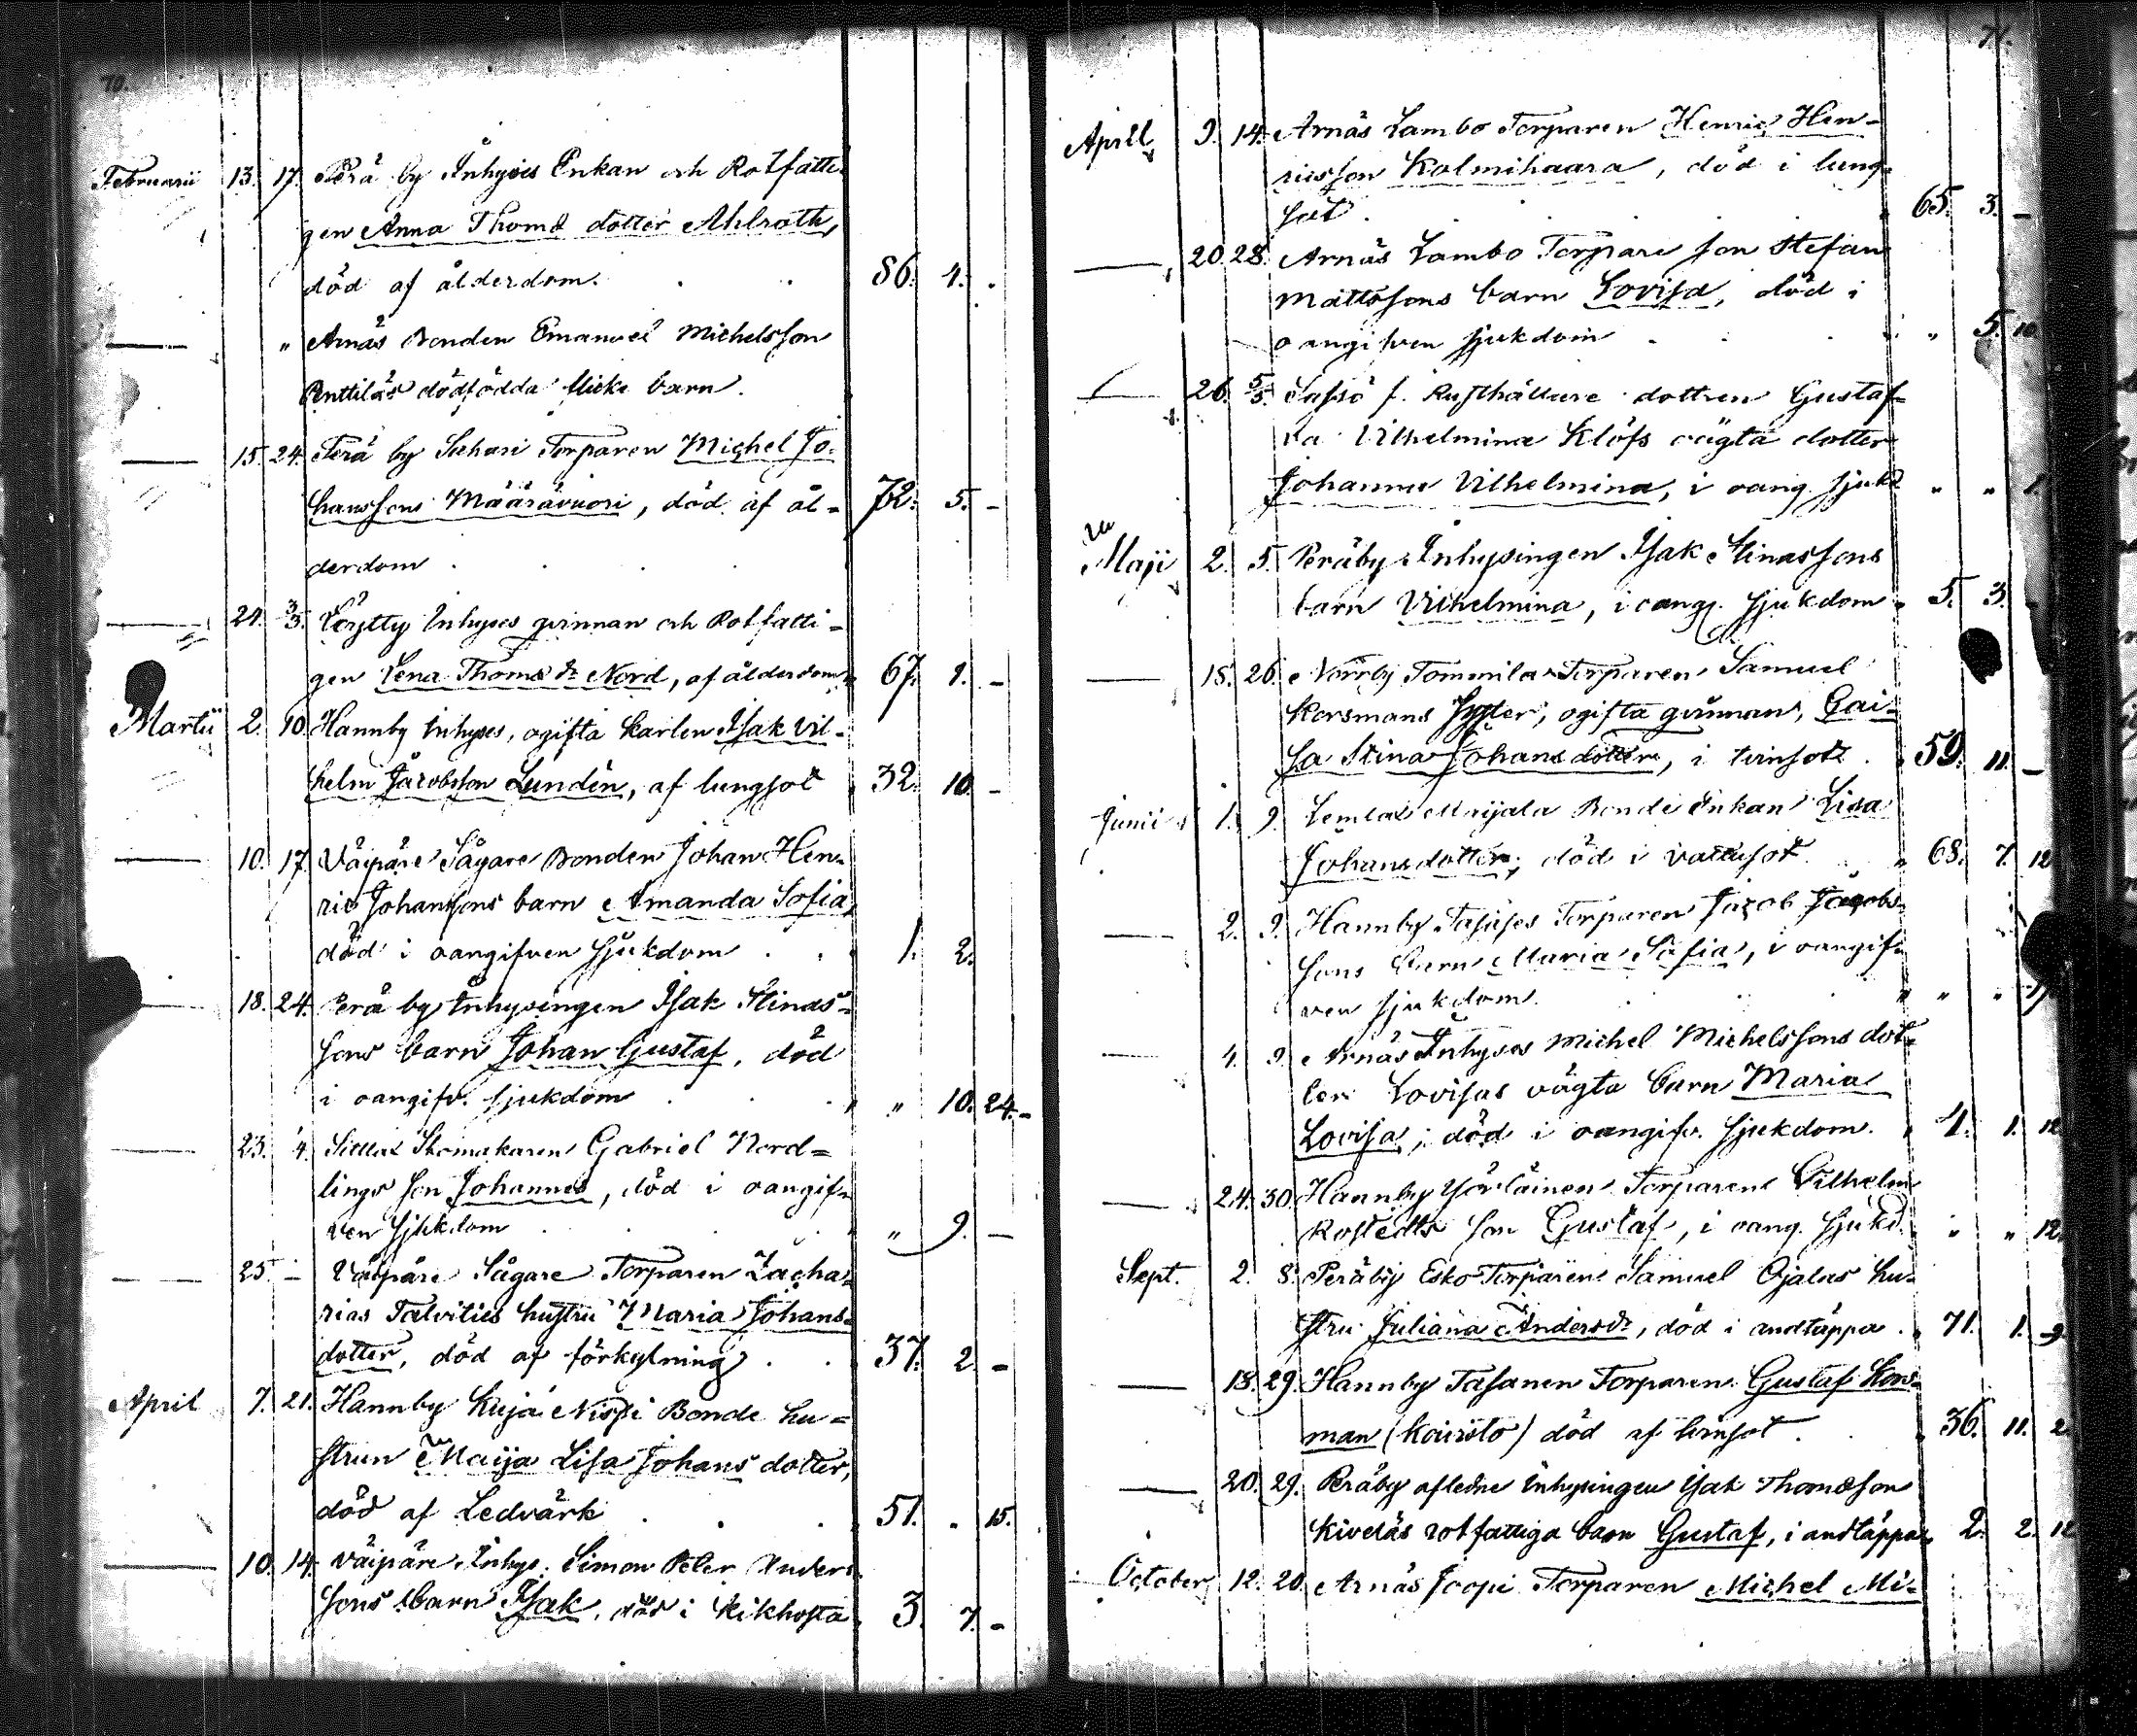 70.
Februarii 13. 17. Perä by Inhyses Enkan och Rotfatti-
gen Anna Thoms dotter Ahlroth,
död af ålderdom. 86. 4. -
— " Arnäs Bonden Emanuel Michelsson
Anttilas dödfödda flicke barn.
— 15. 24. Perä by Sahari Torparen Michel Jo-
hanssons Määrävuori, död af ål- 72. 5. -
derdom
— 24. 3/3. Löytty Inhyses qvinnan och Rotfatti-
gen Lena Thoms dr Nord, af ålderdom 67. 1. -
Martii 2. 10. Hannby Inhyses, ogifta karlen Isak Vil-
helm Jacobsson Lundén, af lungsot 32. 10. -
— 10. 17. Väipäre Sågare Bonden Johan Hen-
ric Johanssons barn Amanda Sofia,
död i oangifven sjukdom 1. 2.
— 18. 24. Perä by Inhysingen Isak Stinas-
sons barn Johan Gustaf, död
i oangifv. sjukdom " 10. 24. -
— 23. 4. Skomakaren Gabriel Nord-
lings son Johannes, död i oangif-
ven sjukdom " 9. —
— 25. — Väipäre Sågare Torparen Zacha-
rias Talvities hustru Maria Johans-
dotter, död af förkylning 37. 2. -
April 7. 21. Hannby Kuja Nispi Bonde hu-
strun Maija Lisa Johans dotter,
död af Ledvärk 51. . 15.
— 10. 14. Väipäre Inhys. Simon Peter Anders
sons barn Isak, död i Kikhosta 3. 7. -
71.
April 9. 14. Arnäs Lambo Torparen Henric Hen-
ricsson Kolmihaara, död i lung-
sot 65. 3. -
— 20. 28. Arnäs Lambo Torpare son Stefan
Mattssons barn Lovisa, död i
oangifven sjukdom " 5. 10.
— 26. 5/5. Sassö f. Rusthållare dottren Gustaf-
va Vilhelmina Klöfs oägta dotter
Johanna Vilhelmina, i oang. sjukd " " 1.
Maji 2. 5. Peräby Inhysingen Isak Stinassons
barn Vilhelmina, i oang. sjukdom 5. 3. -
— 18. 26. Norrby Tommila Torparen Samuel
Korsmans syster, ogifta qvinnan, Cai-
sa Stina Johans dotter, i tvinsot 59. 11. —
Junii 1. 9. Lemlax Maijala Bonde Enkan Lisa
Johansdotter, död i vattusot 68. 7. 12
— 2. 9. Hannby Torparen Jacob Jacobs-
sons barn Maria Sofia, i oangif-
ven sjukdom. " "
— 4. 9. Arnäs Inhyses Michel Michelssons dot-
ter Lovisas oägta barn Maria
Lovisa, död i oangifv. sjukdom. 4. 1. 12
— 24. 30. Hannby Torparen Vilhelm
Rostedts son Gustaf, i oang. sjukd. " " 12.
Sept. 2. 8. Peräby Esko Torparen Samuel Ojalas hu-
stru Juliana Andersdr, död i andtäppa 71. 1. 9
— 18. 29. Hannby Tasanen Torparen Gustaf Kors-
man (Kouristo) död af tvinsot 36. 11. 2
— 20. 29. Peräby afledne Inhysingen Isak Thomsson
Kiveläs rotfattiga barn Gustaf, i andtäppa 2. 2. 12
October 12. 20. Arnäs Joopi Torparen Michel Mi-